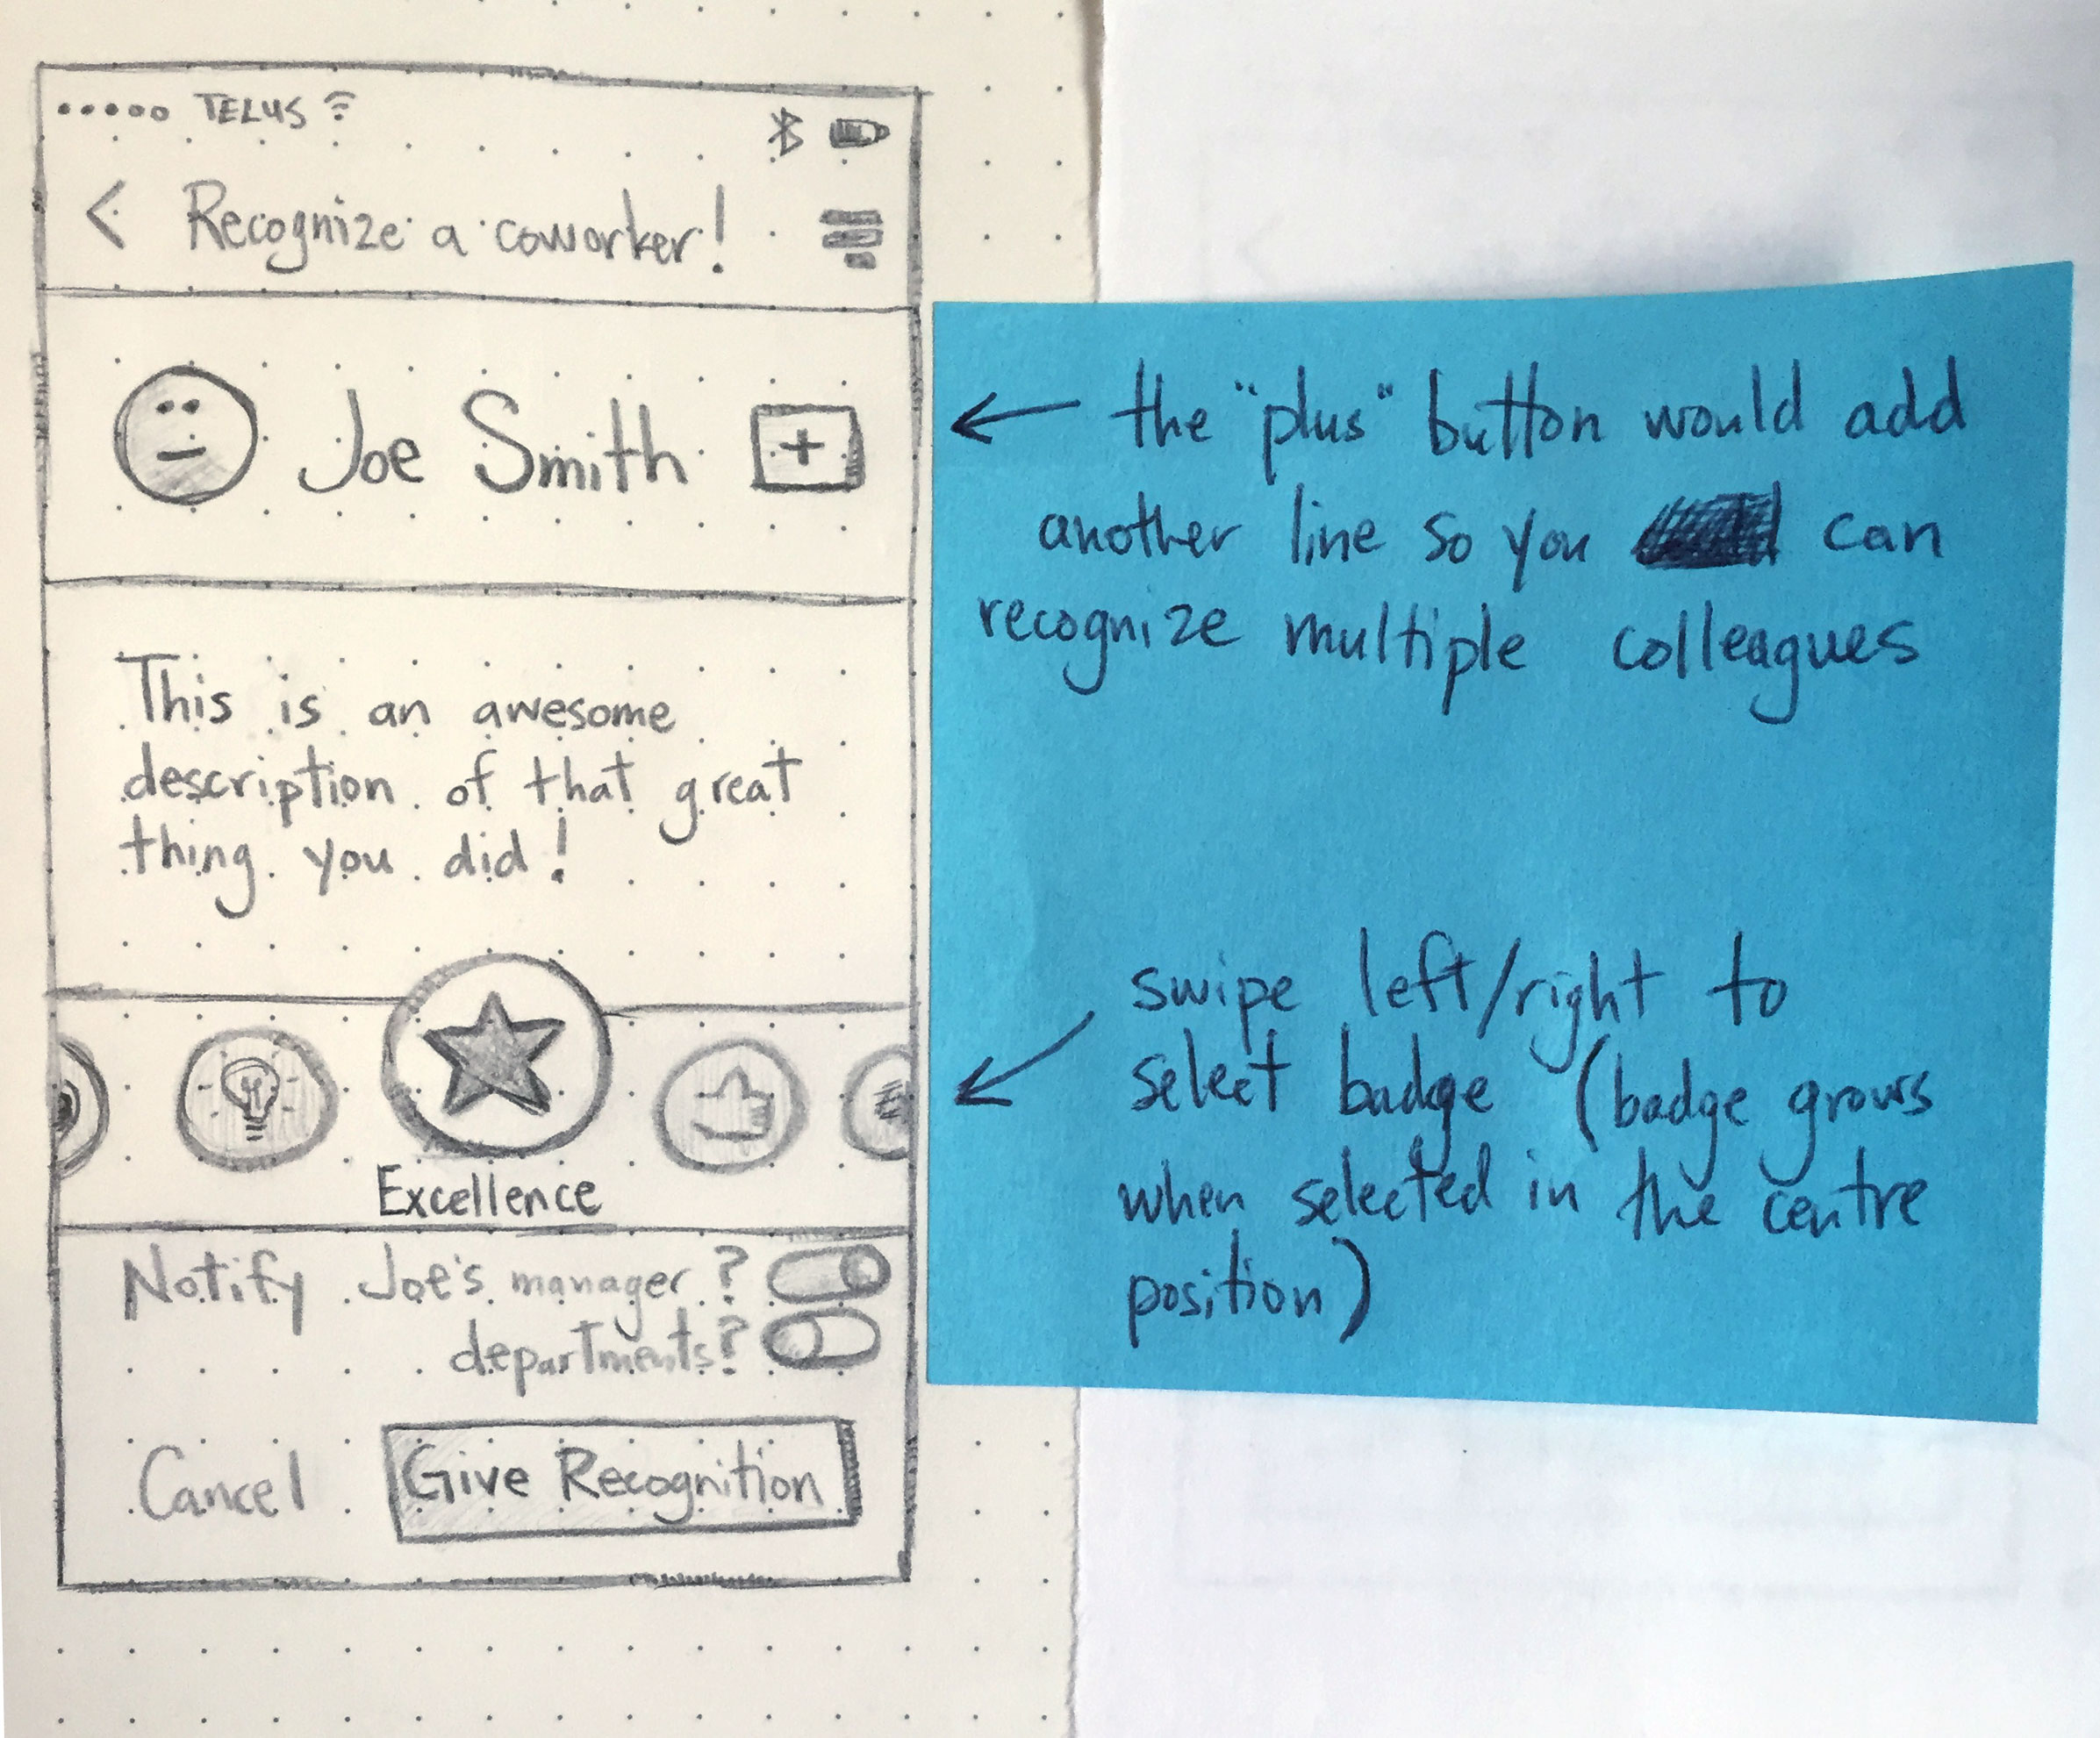 TELUS
< Recognize a coworker!
Joe Smith +
This is an awesome
description of that great
thing you did!
Excellence
Notify Joe's manager?
departments?
Cancel Give Recognition
← the "plus" button would add
another line so you can
recognize multiple colleagues
swipe left/right to
select badge (badge grows
when selected in the centre
position)